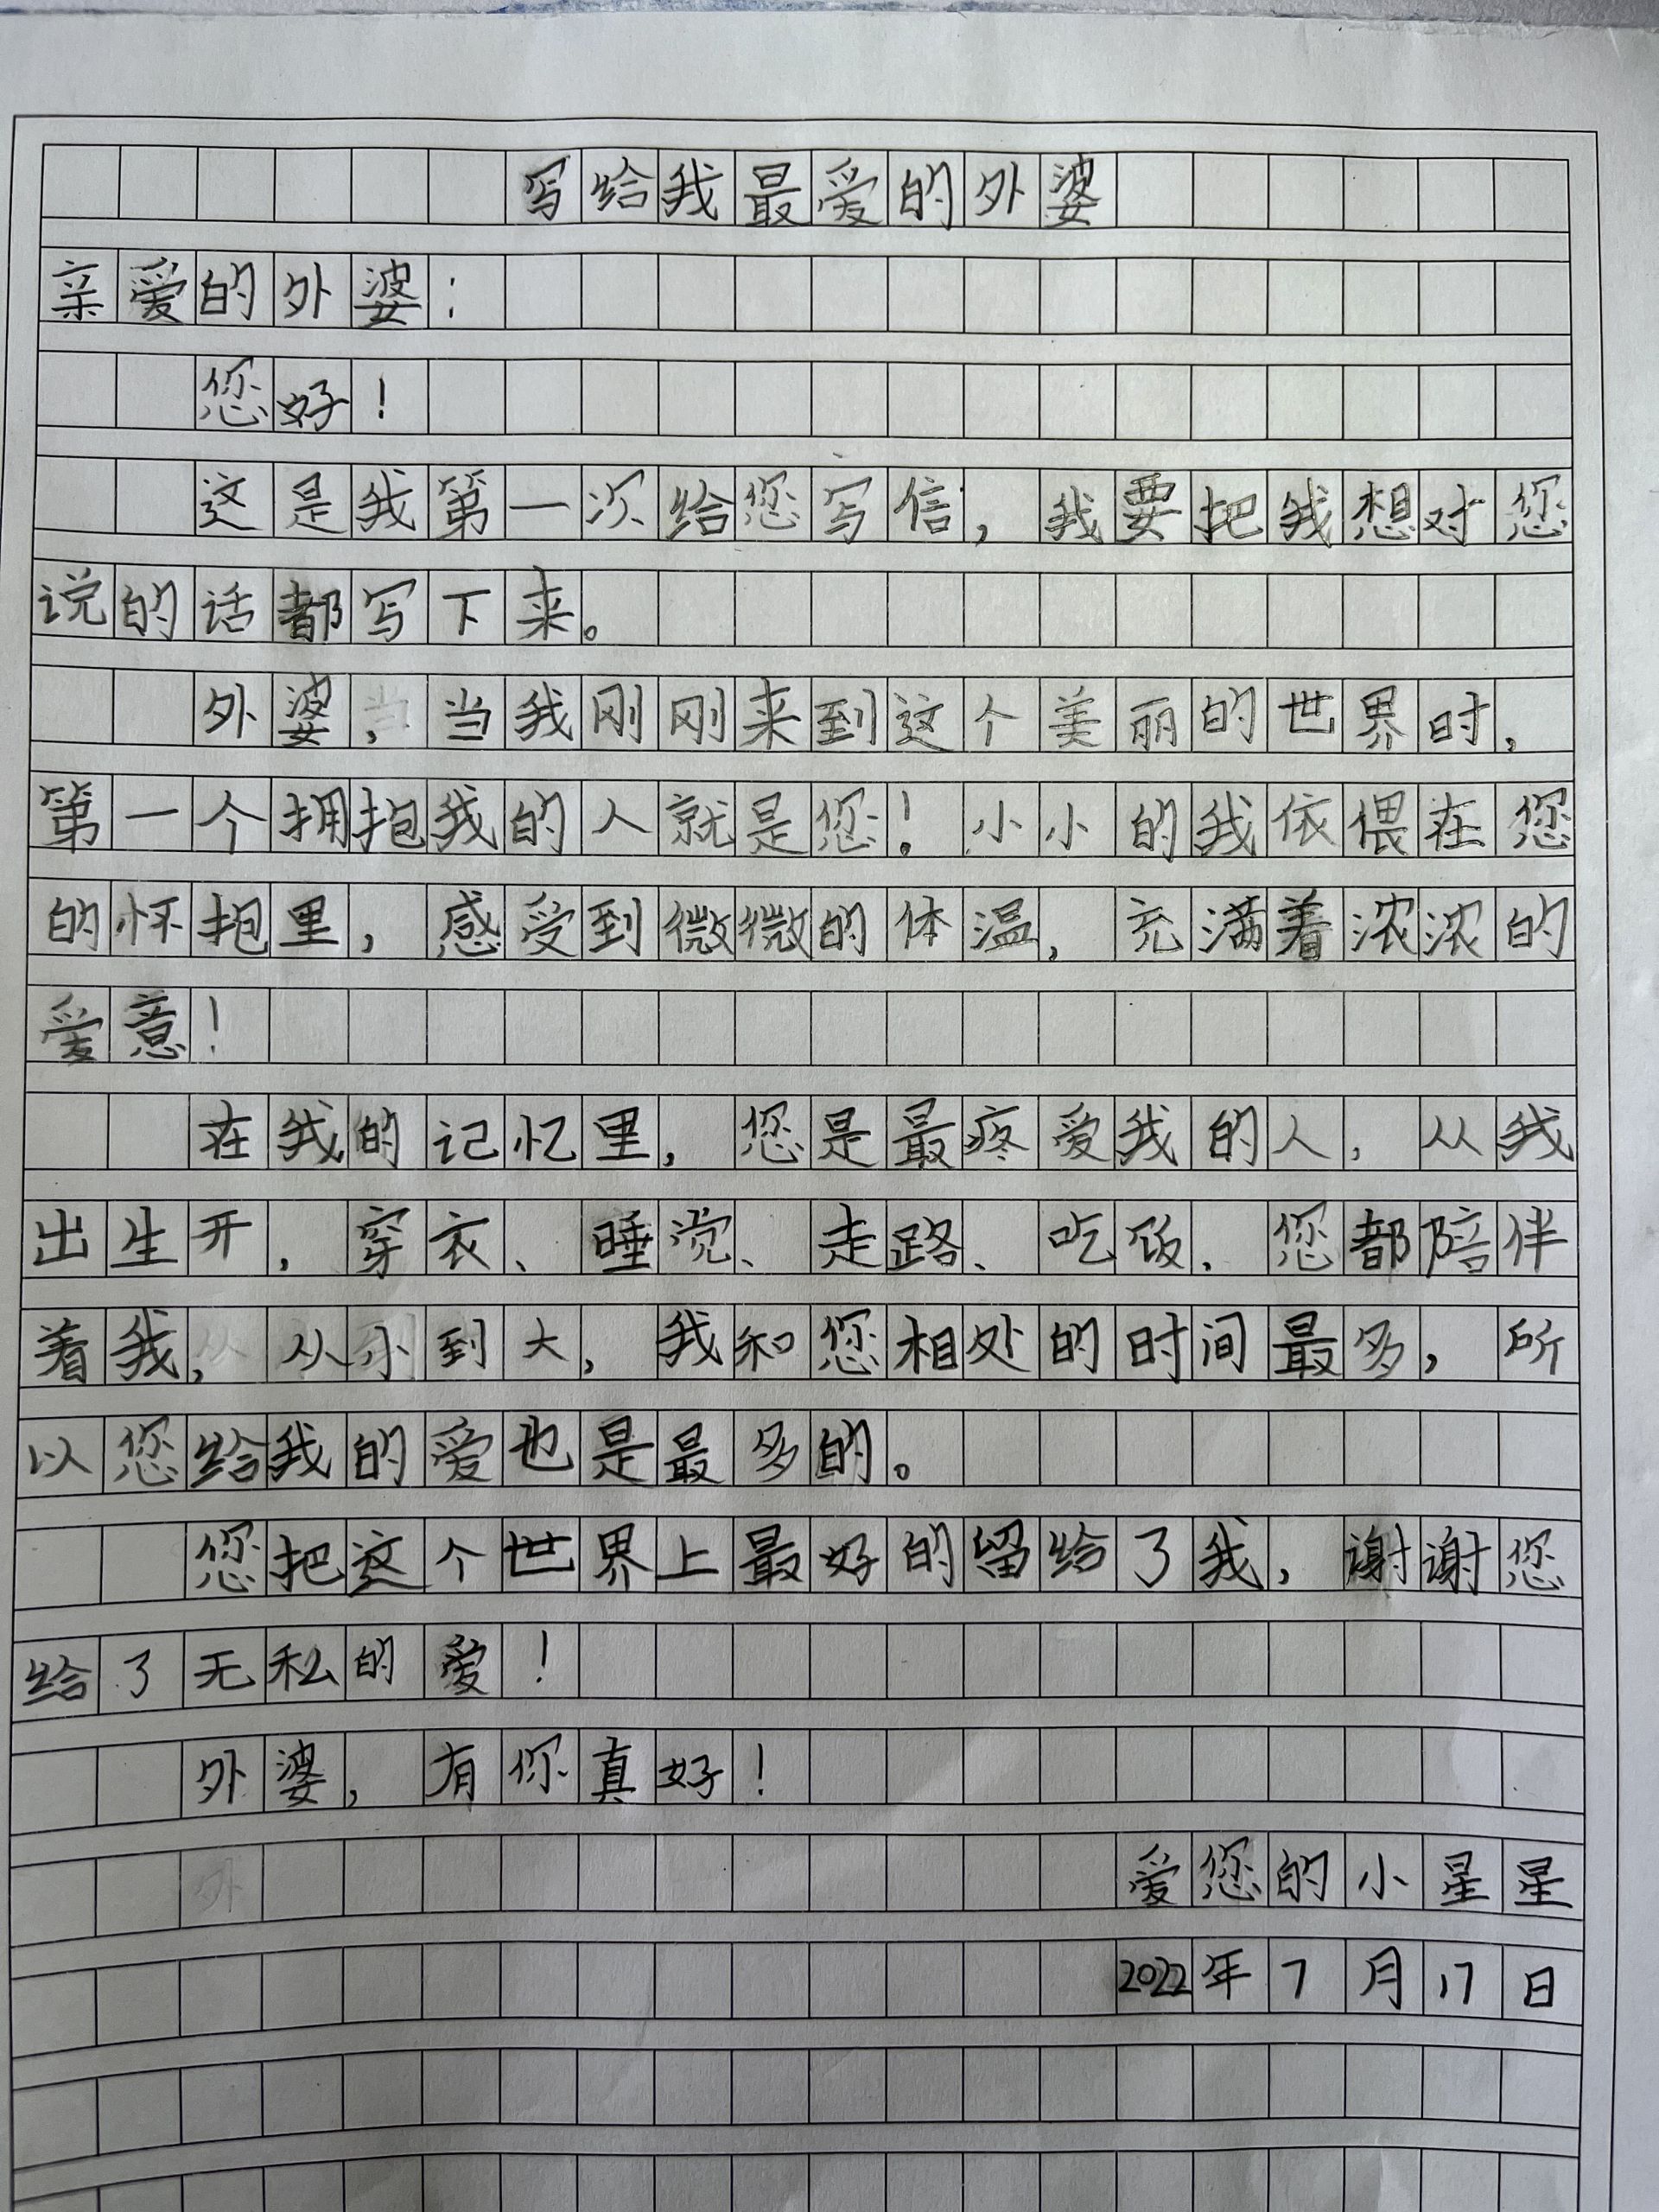 写给我最爱的外婆
亲爱的外婆：
您好！
这是我第一次给您写信，我要把我想对您
说的话都写下来。
外婆，当我刚刚来到这个美丽的世界时，
第一个拥抱我的人就是您！小小的我依偎在您
的怀抱里，感受到微微的体温，充满着浓浓的
爱意！
在我的记忆里，您是最疼爱我的人，从我
出生开，穿衣、睡觉、走路、吃饭，您都陪伴
着我，从小到大，我和您相处的时间最多，所
以您给我的爱也是最多的。
您把这个世界上最好的留给了我，谢谢您
给了无私的爱！
外婆，有你真好！
爱您的小星星
2022年7月17日